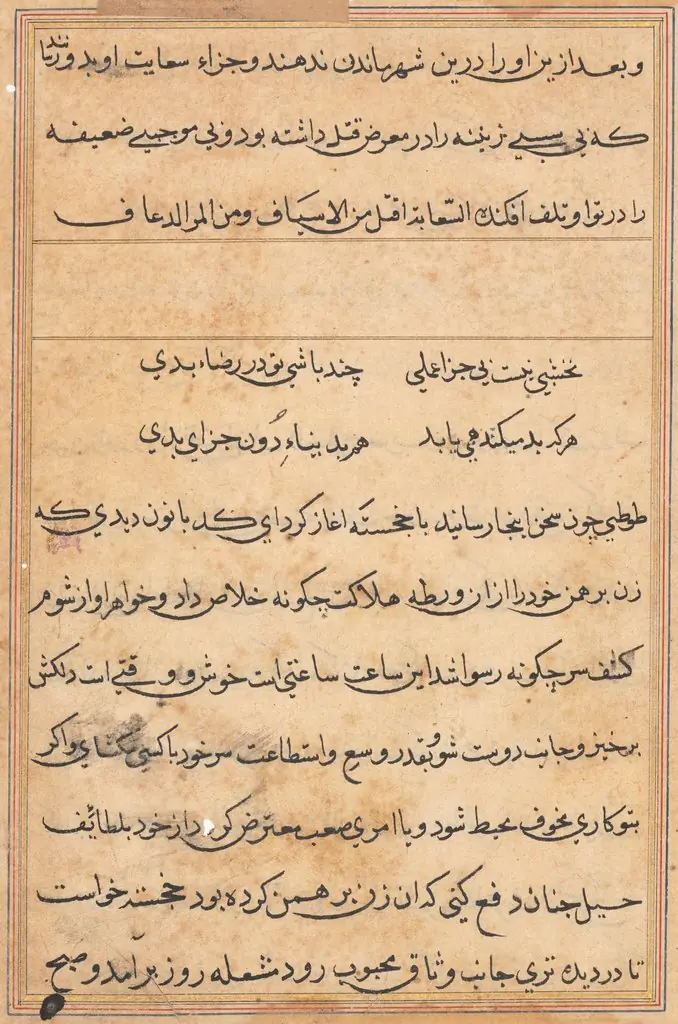 و بعد ازین او را درین شهر ماندن ندهند و جزاء سعایت او بدو رسانند
که بی سببی زنینه را در معرض قتل داشته بود و بی موجبی ضعیفه
را در توا و تلف افکنده السعایة اقتل من الاسیاف ومن المر الدعاف
نخشبی نیست بی جزا عملی چند باشی تو در رضاء بدی
هر که بد میکند همی یابد هم بدینیاء دون جزای بدی
طوطی چون سخن اینجا رسانید با خجسته اغاز کرد ای کدبانو ندیدی که
زن برهمن خود را ازان ورطه هلاکت چکونه خلاص داد و خواهر او از شوم
کشف سر چکونه رسوا شد این ساعت ساعتی است خوش و وقتی است دلکش
برخیز و جانب دوست شو و بقدر وسع و استطاعت سر خود با کسی مکشای و اکر
بتو کاری مخوف محیط شود و یا امری صعب معترض کردد از خود بلطائف
حیل چنان دفع کنی که ان زن برهمن کرده بود خجسته خواست
تا در دیده تری جانب وثاق محبوب رود مشعله روز برآمد و صبح